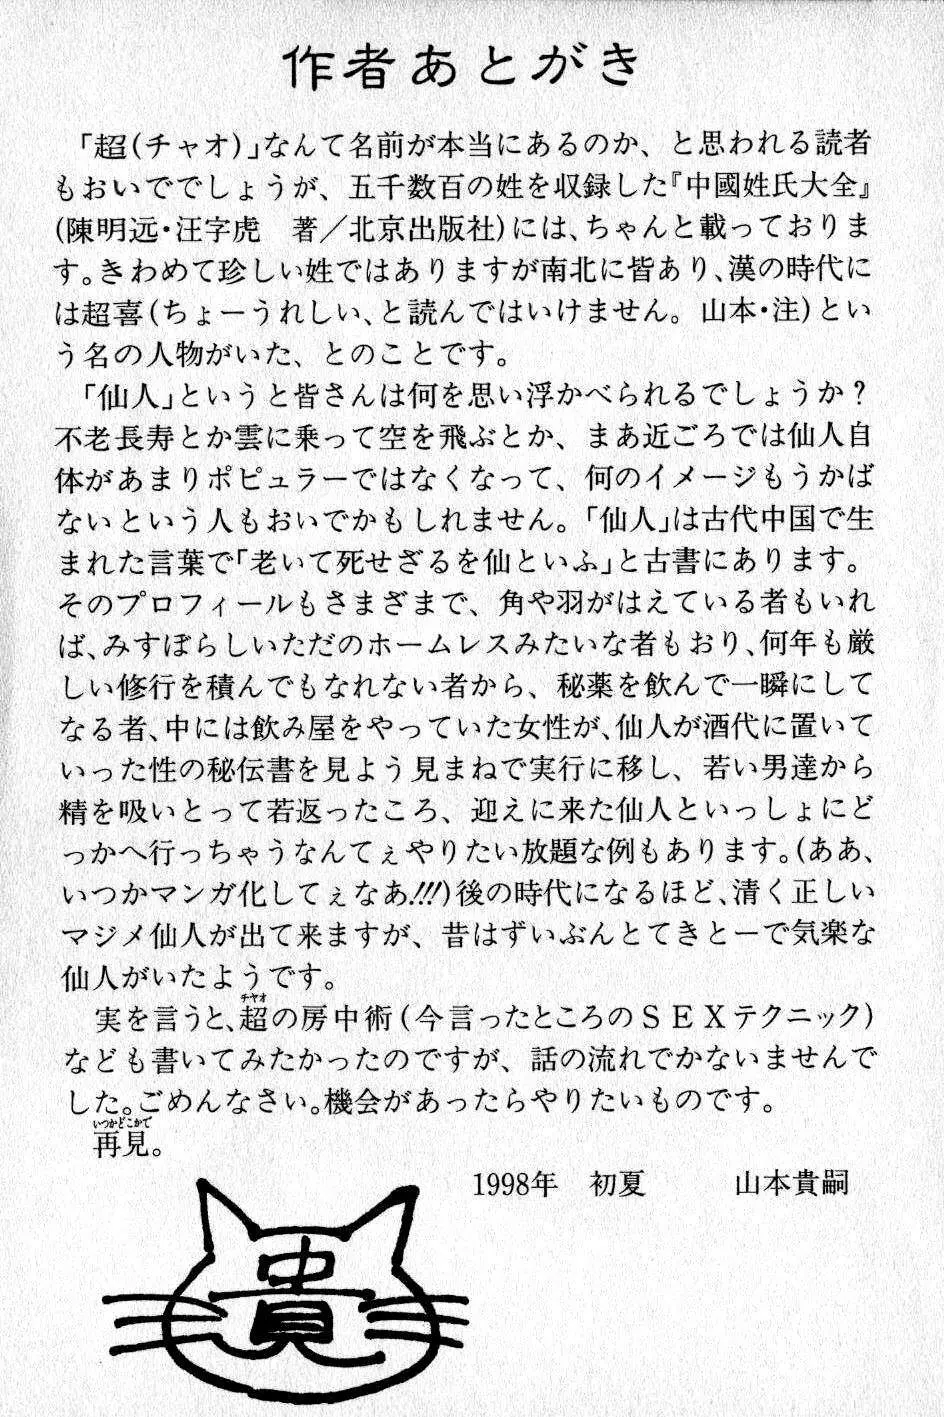 作者あとがき
「超(チャオ)」なんて名前が本当にあるのか、と思われる読者
もおいででしょうが、五千数百の姓を収録した『中國姓氏大全』
(陳明远・汪字虎　著／北京出版社)には、ちゃんと載っておりま
す。きわめて珍しい姓ではありますが南北に皆あり、漢の時代に
は超喜(ちょーうれしい、と読んではいけません。山本・注)とい
う名の人物がいた、とのことです。
「仙人」というと皆さんは何を思い浮かべられるでしょうか？
不老長寿とか雲に乗って空を飛ぶとか、まあ近ごろでは仙人自
体があまりポピュラーではなくなって、何のイメージもうかば
ないという人もおいでかもしれません。「仙人」は古代中国で生
まれた言葉で「老いて死せざるを仙といふ」と古書にあります。
そのプロフィールもさまざまで、角や羽がはえている者もいれ
ば、みすぼらしいただのホームレスみたいな者もおり、何年も厳
しい修行を積んでもなれない者から、秘薬を飲んで一瞬にして
なる者、中には飲み屋をやっていた女性が、仙人が酒代に置いて
いった性の秘伝書を見よう見まねで実行に移し、若い男達から
精を吸いとって若返ったころ、迎えに来た仙人といっしょにど
っかへ行っちゃうなんてぇやりたい放題な例もあります。(ああ、
いつかマンガ化してぇなあ!!!)後の時代になるほど、清く正しい
マジメ仙人が出て来ますが、昔はずいぶんとてきとーで気楽な
仙人がいたようです。
チヤオ
実を言うと、超の房中術(今言ったところのＳＥＸテクニック)
なども書いてみたかったのですが、話の流れでかないませんで
した。ごめんなさい。機会があったらやりたいものです。
いつかどこかで
再見。
1998年　初夏　　　山本貴嗣
貴